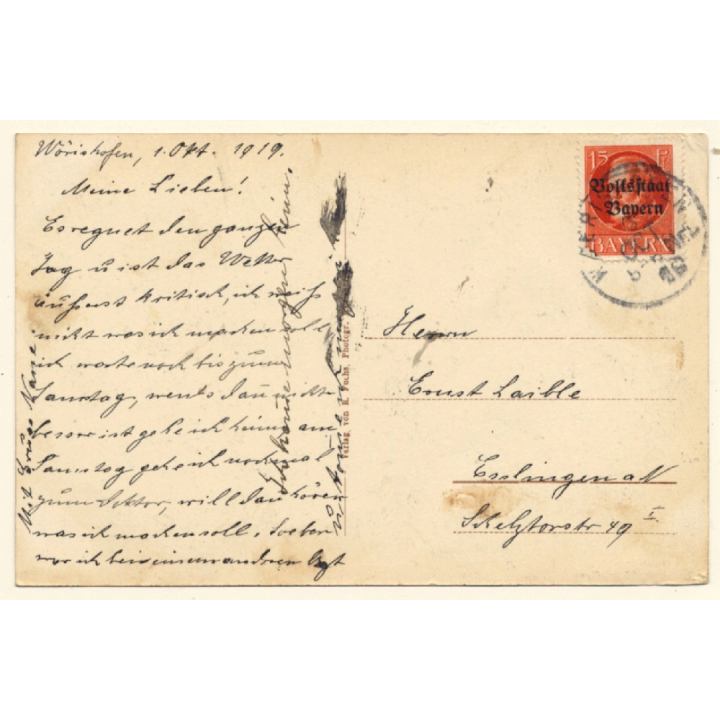 Wörishofen, 1. Okt. 1919.
Meine Lieben!
Es regnet den ganzen
Tag u ist das Wetter
äußerst kritisch, ich weiß
nicht was ich machen soll
ich warte noch bis zum
Samstag, wenns dann nicht
besser ist gehe ich heim, am
Samstag gehe ich nochmal
zum Doktor, will dan hören
was ich machen soll. Soeben
war ich bei einem anderen Arzt
morgen
heim.
Mit Gruß
Verlag von Fuchs, Photogr.
15 Pf
Volksstaat
Bayern
BAYERN
Herrn
Ernst Laible
Esslingen a N
Schelztorstr 49 I.